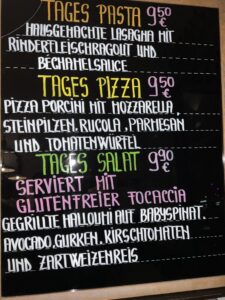 TAGES PASTA 9.50 €
HAUSGEMACHTE LASAGNA MIT
RINDERFLEISCHRAGOUT UND
BECHAMELSAUCE
TAGES PIZZA 9.50 €
PIZZA PORCINI MIT MOZZARELLA,
STEINPILZEN, RUCOLA, PARMESAN
UND TOMATENWÜRFEL
TAGES SALAT 9.90 €
SERVIERT MIT
GLUTENFREIER FOCACCIA
GEGRILLTE HALLOUMI AUF BABYSPINAT,
AVOCADO, GURKEN, KIRSCHTOMATEN
UND ZARTWEIZENREIS